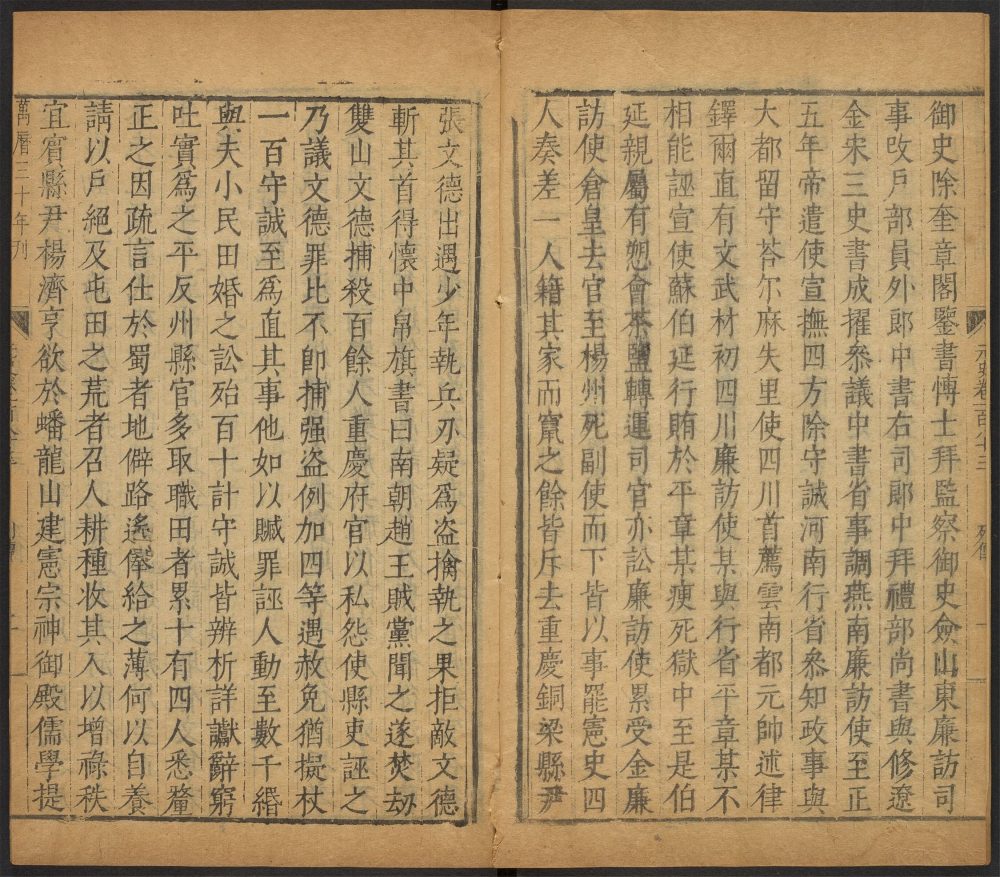 御史除奎章閣鑒書博士拜監察御史僉山東廉訪司
事改戶部員外郎中書右司郎中拜禮部尚書與修遼
金宋三史書成擢叅議中書省事調燕南廉訪使至正
五年帝遣使宣撫四方除守誠河南行省叅知政事與
大都留守荅尔麻失里使四川首薦雲南都元帥述律
鐸爾直有文武材初四川廉訪使某與行省平章某不
相能誣宣使蘇伯延行賄於平章某瘐死獄中至是伯
延親屬有愬會茶鹽轉運司官亦訟廉訪使累受金廉
訪使倉皇去官至楊州死副使而下皆以事罷憲史四
人奏差一人籍其家而竄之餘皆斥去重慶銅梁縣尹
元史卷一百八十三
列傳
張文德出遇少年執兵刃疑爲盜擒執之果拒敵文德
斬其首得懷中帛旗書曰南朝趙王賊黨聞之遂焚刼
雙山文德捕殺百餘人重慶府官以私怨使縣吏誣之
乃議文德罪比不卽捕强盜例加四等遇赦免猶擬杖
一百守誠至爲直其事他如以贓罪誣人動至數千緡
與夫小民田婚之訟殆百十計守誠皆辨析詳讞辭窮
吐實爲之平反州縣官多取職田者累十有四人悉釐
正之因疏言仕於蜀者地僻路遙俸給之薄何以自養
請以戶絕及屯田之荒者召人耕種收其入以增祿秩
宜賓縣尹楊濟亨欲於蟠龍山建憲宗神御殿儒學提
萬曆三十年刊